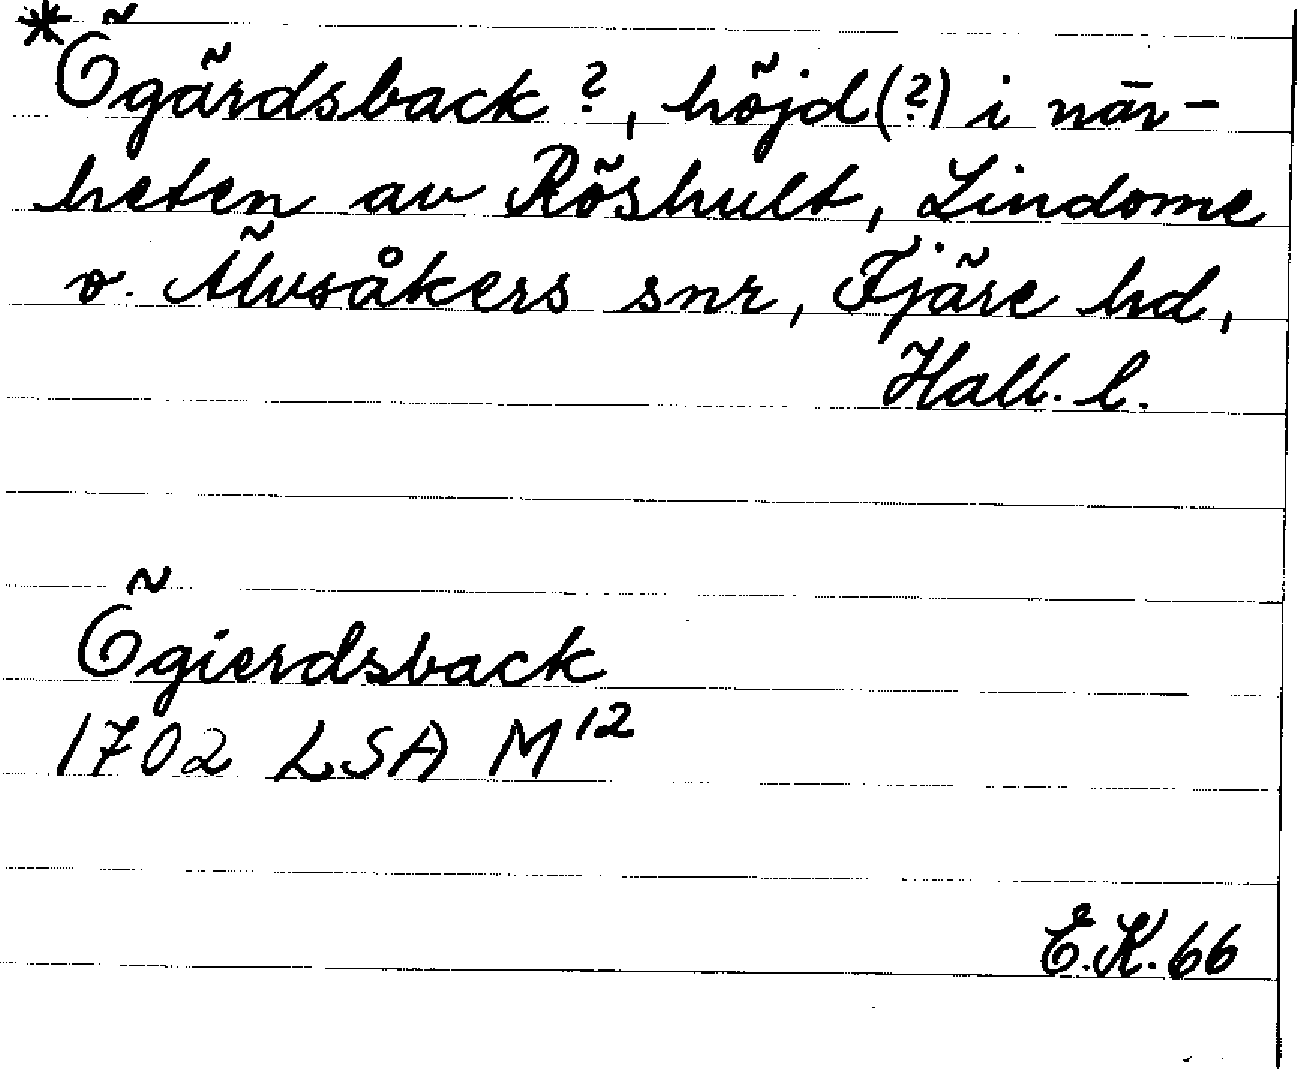 *Ögärdsback?, höjd(?) i när-
heten av Röshult, Lindome
o. Älvsåkers snr, Fjäre hd,
Hall. l.
Ögierdsback
1702 LSA M12
E.K. 66